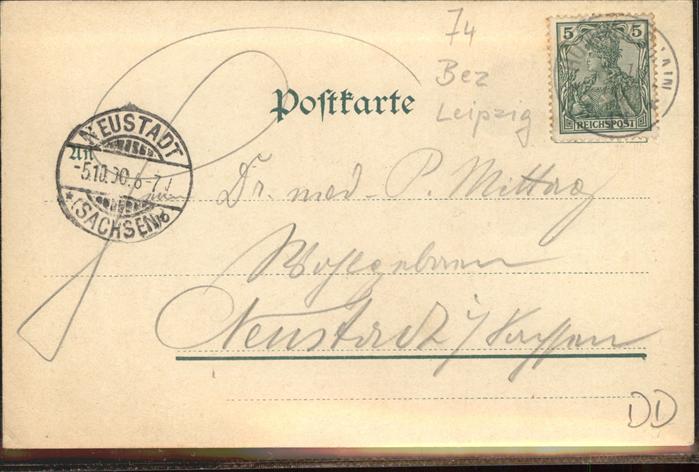 74
Bez
Leipzig
5 5
REICHSPOST
Postkarte
NEUSTADT
-5.10.00.6-7
*(SACHSEN)*
An
Dr. med. P. Mittag
Wohlgeboren
Neustadt i/Sachsen
DD